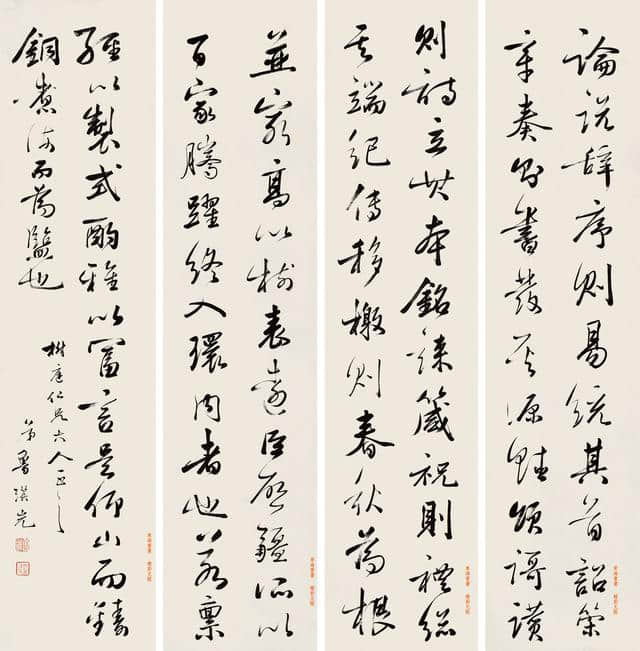 論說辭序則易統其首詔策
章奏則書發其源賦頌謌讚
則詩立其本銘誄箴祝則禮總
其端紀傳移檄則春秋為根
並窮高以樹表遠㠯啟疆所以
百家騰躍終入環内者也若稟
經以製式酌雅以富言是仰山而鑄
銅煮海而為鹽也
樹庭仁兄大人正之
弟魯琪光